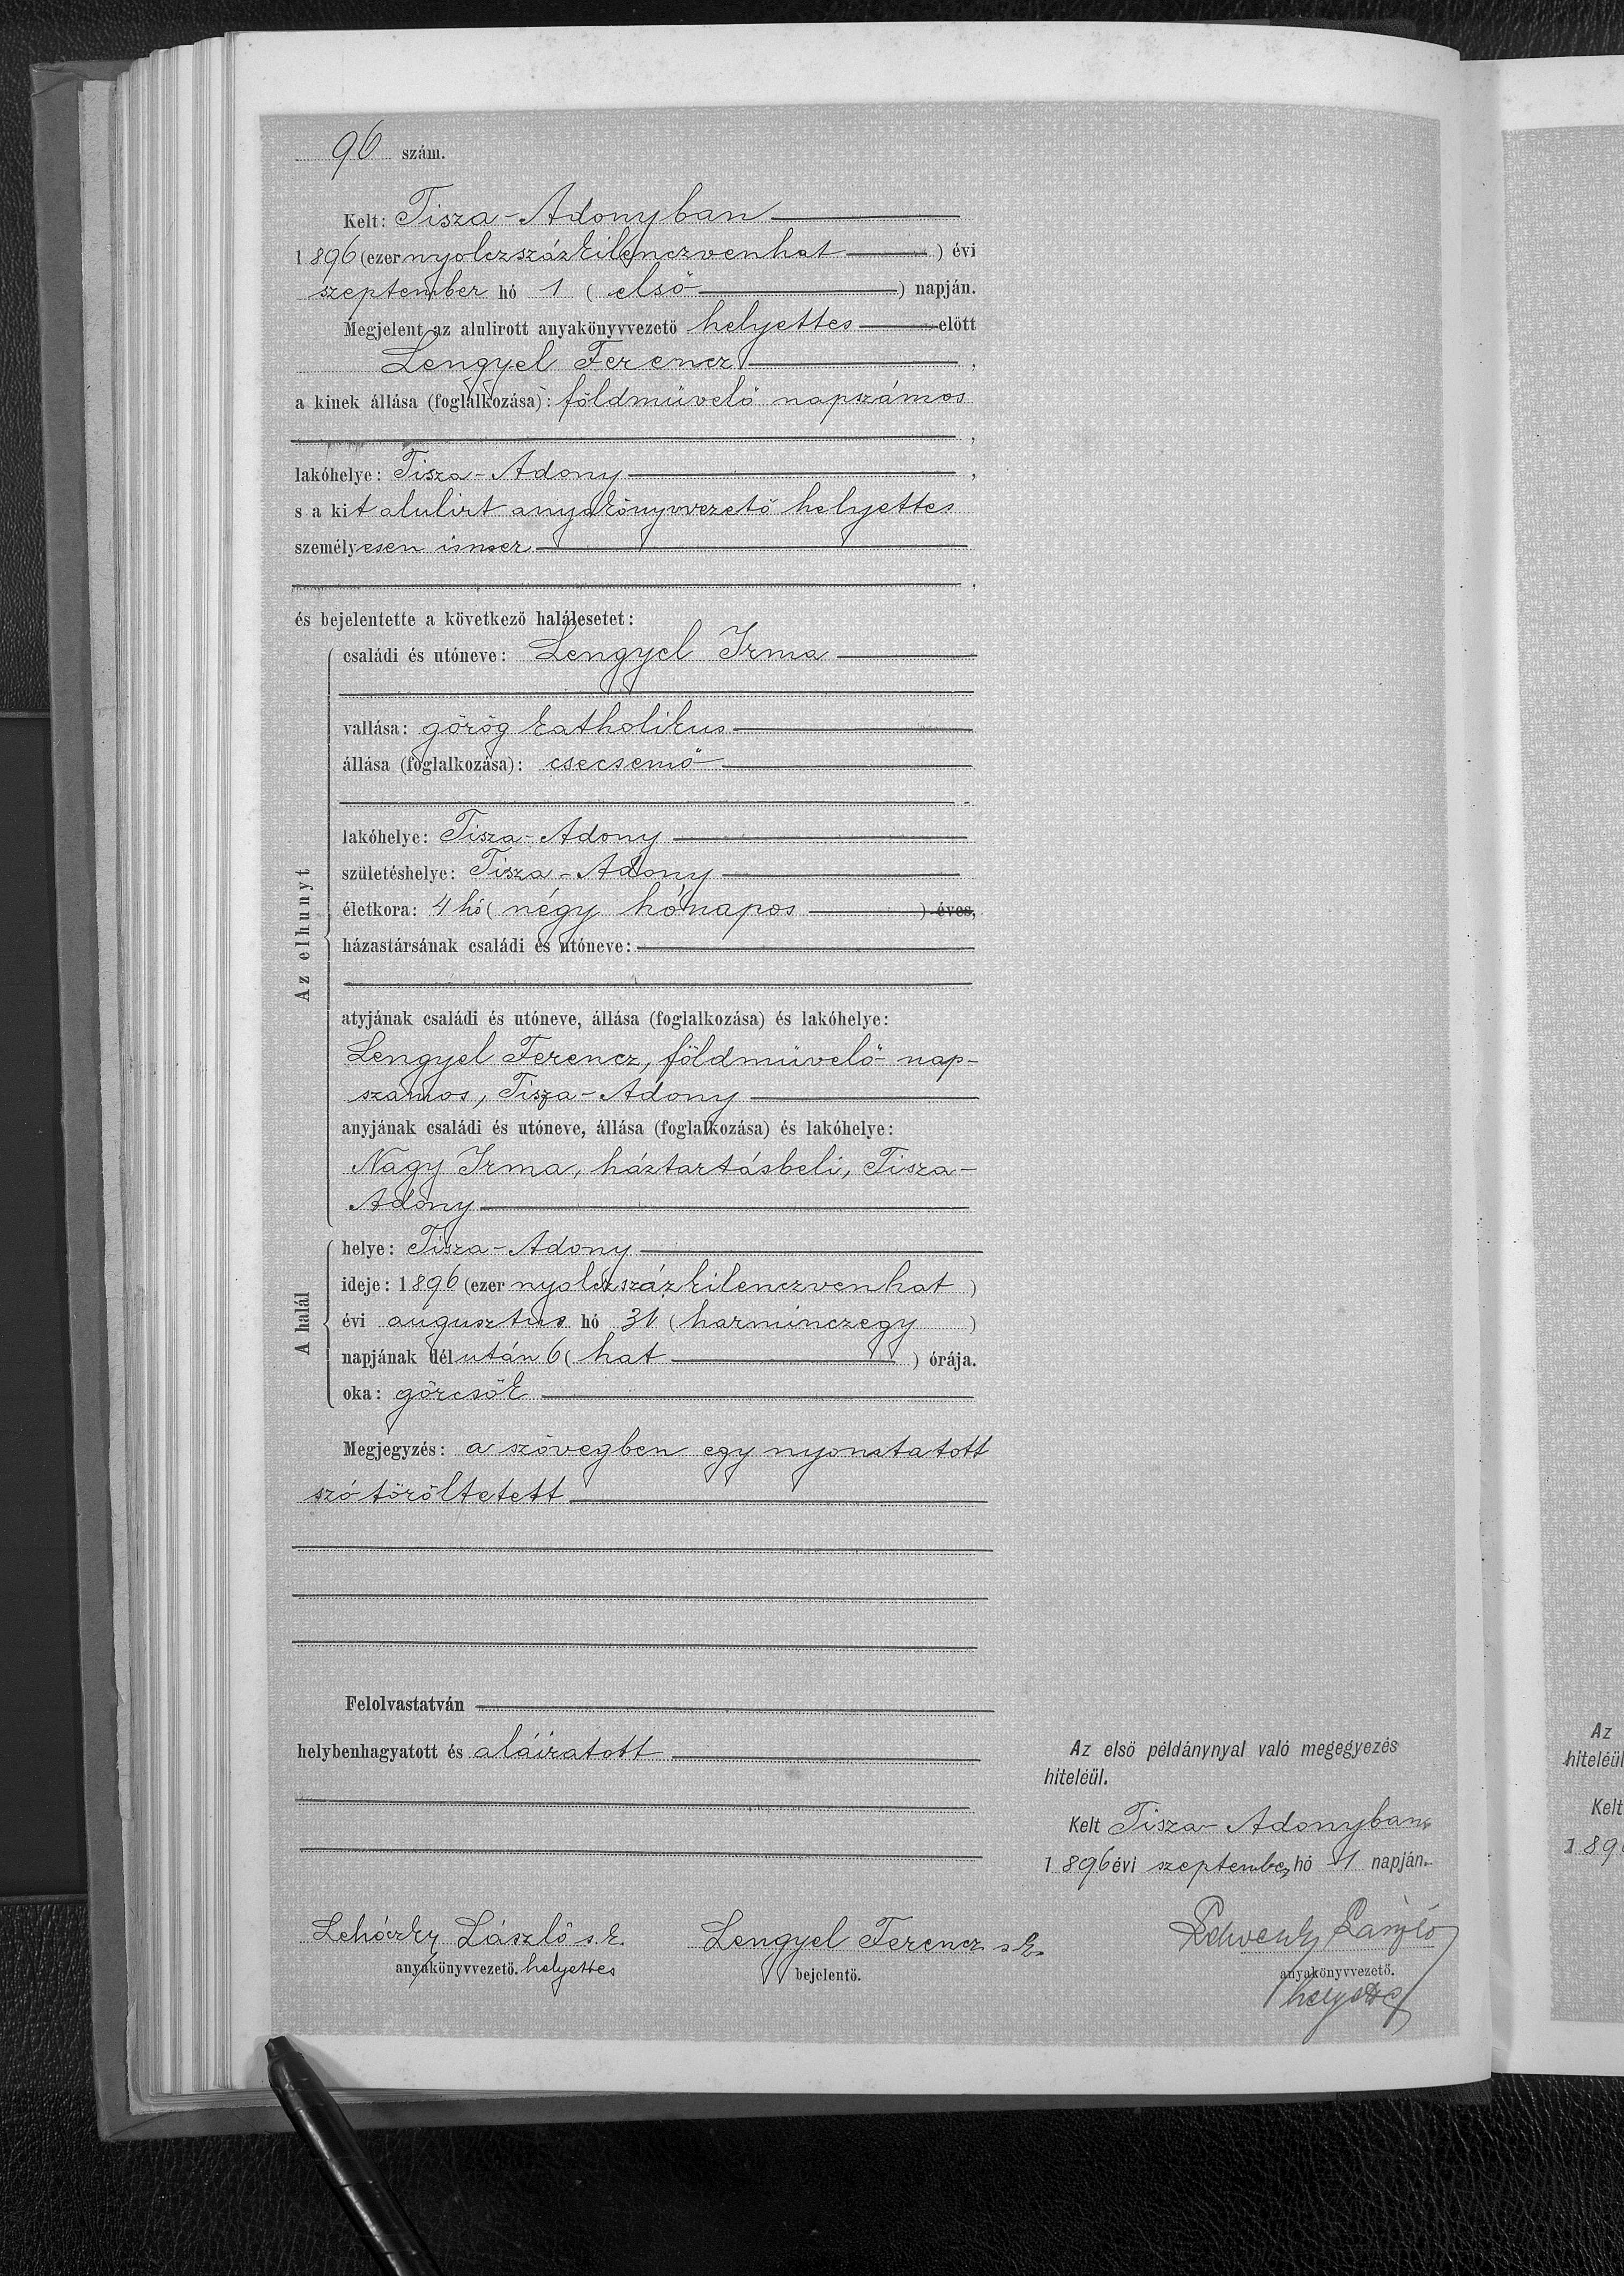 96 szám.
Kelt: Tisza-Adonyban
1896 (ezer nyolczszázkilenczvenhat) évi
szeptember hó 1 (elsö) napján.
Megjelent az alulirott anyakönyvvezetö helyettes elött
Lengyel Ferencz,
a kinek állása (foglalkozása): földmüvelö napszámos
,
lakóhelye: Tisza-Adony,
s a kit alulirt anyakönyvvezetö helyettes
személyesen ismer
,
és bejelentette a következö halálesetet:
Az elhunyt
családi és utóneve: Lengyel Irma
vallása: görög katholikus
állása (foglalkozása): csecsemö
lakóhelye: Tisza-Adony
születéshelye: Tisza-Adony
életkora: 4 hó (négy hónapos) éves,
házastársának családi és utóneve:
atyjának családi és utóneve, állása (foglalkozása) és lakóhelye:
Lengyel Ferencz, földmüvelö nap-
számos, Tisza-Adony
anyjának családi és utóneve, állása (foglalkozása) és lakóhelye:
Nagy Irma, háztartásbeli, Tisza-
Adony
A halál
helye: Tisza-Adony
ideje: 1896 (ezer nyolczszázkilenczvenhat)
évi augusztus hó 31 (harminczegy)
napjának délután 6 (hat) órája.
oka: görcsök
Megjegyzés: a szövegben egy nyomtatott
szó töröltetett
Felolvastatván
helybenhagyatott és aláiratott
Az elsö példánynyal való megegyezés
hiteléül.
Kelt Tisza-Adonyban
1896 évi szeptember hó 1 napján.
Lehóczky László s. k.
anyakönyvvezetö. helyettes
Lengyel Ferencz s. k.
bejelentö.
László
anyakönyvvezetö.
helyettes
Az
hiteléül
Kelt
189